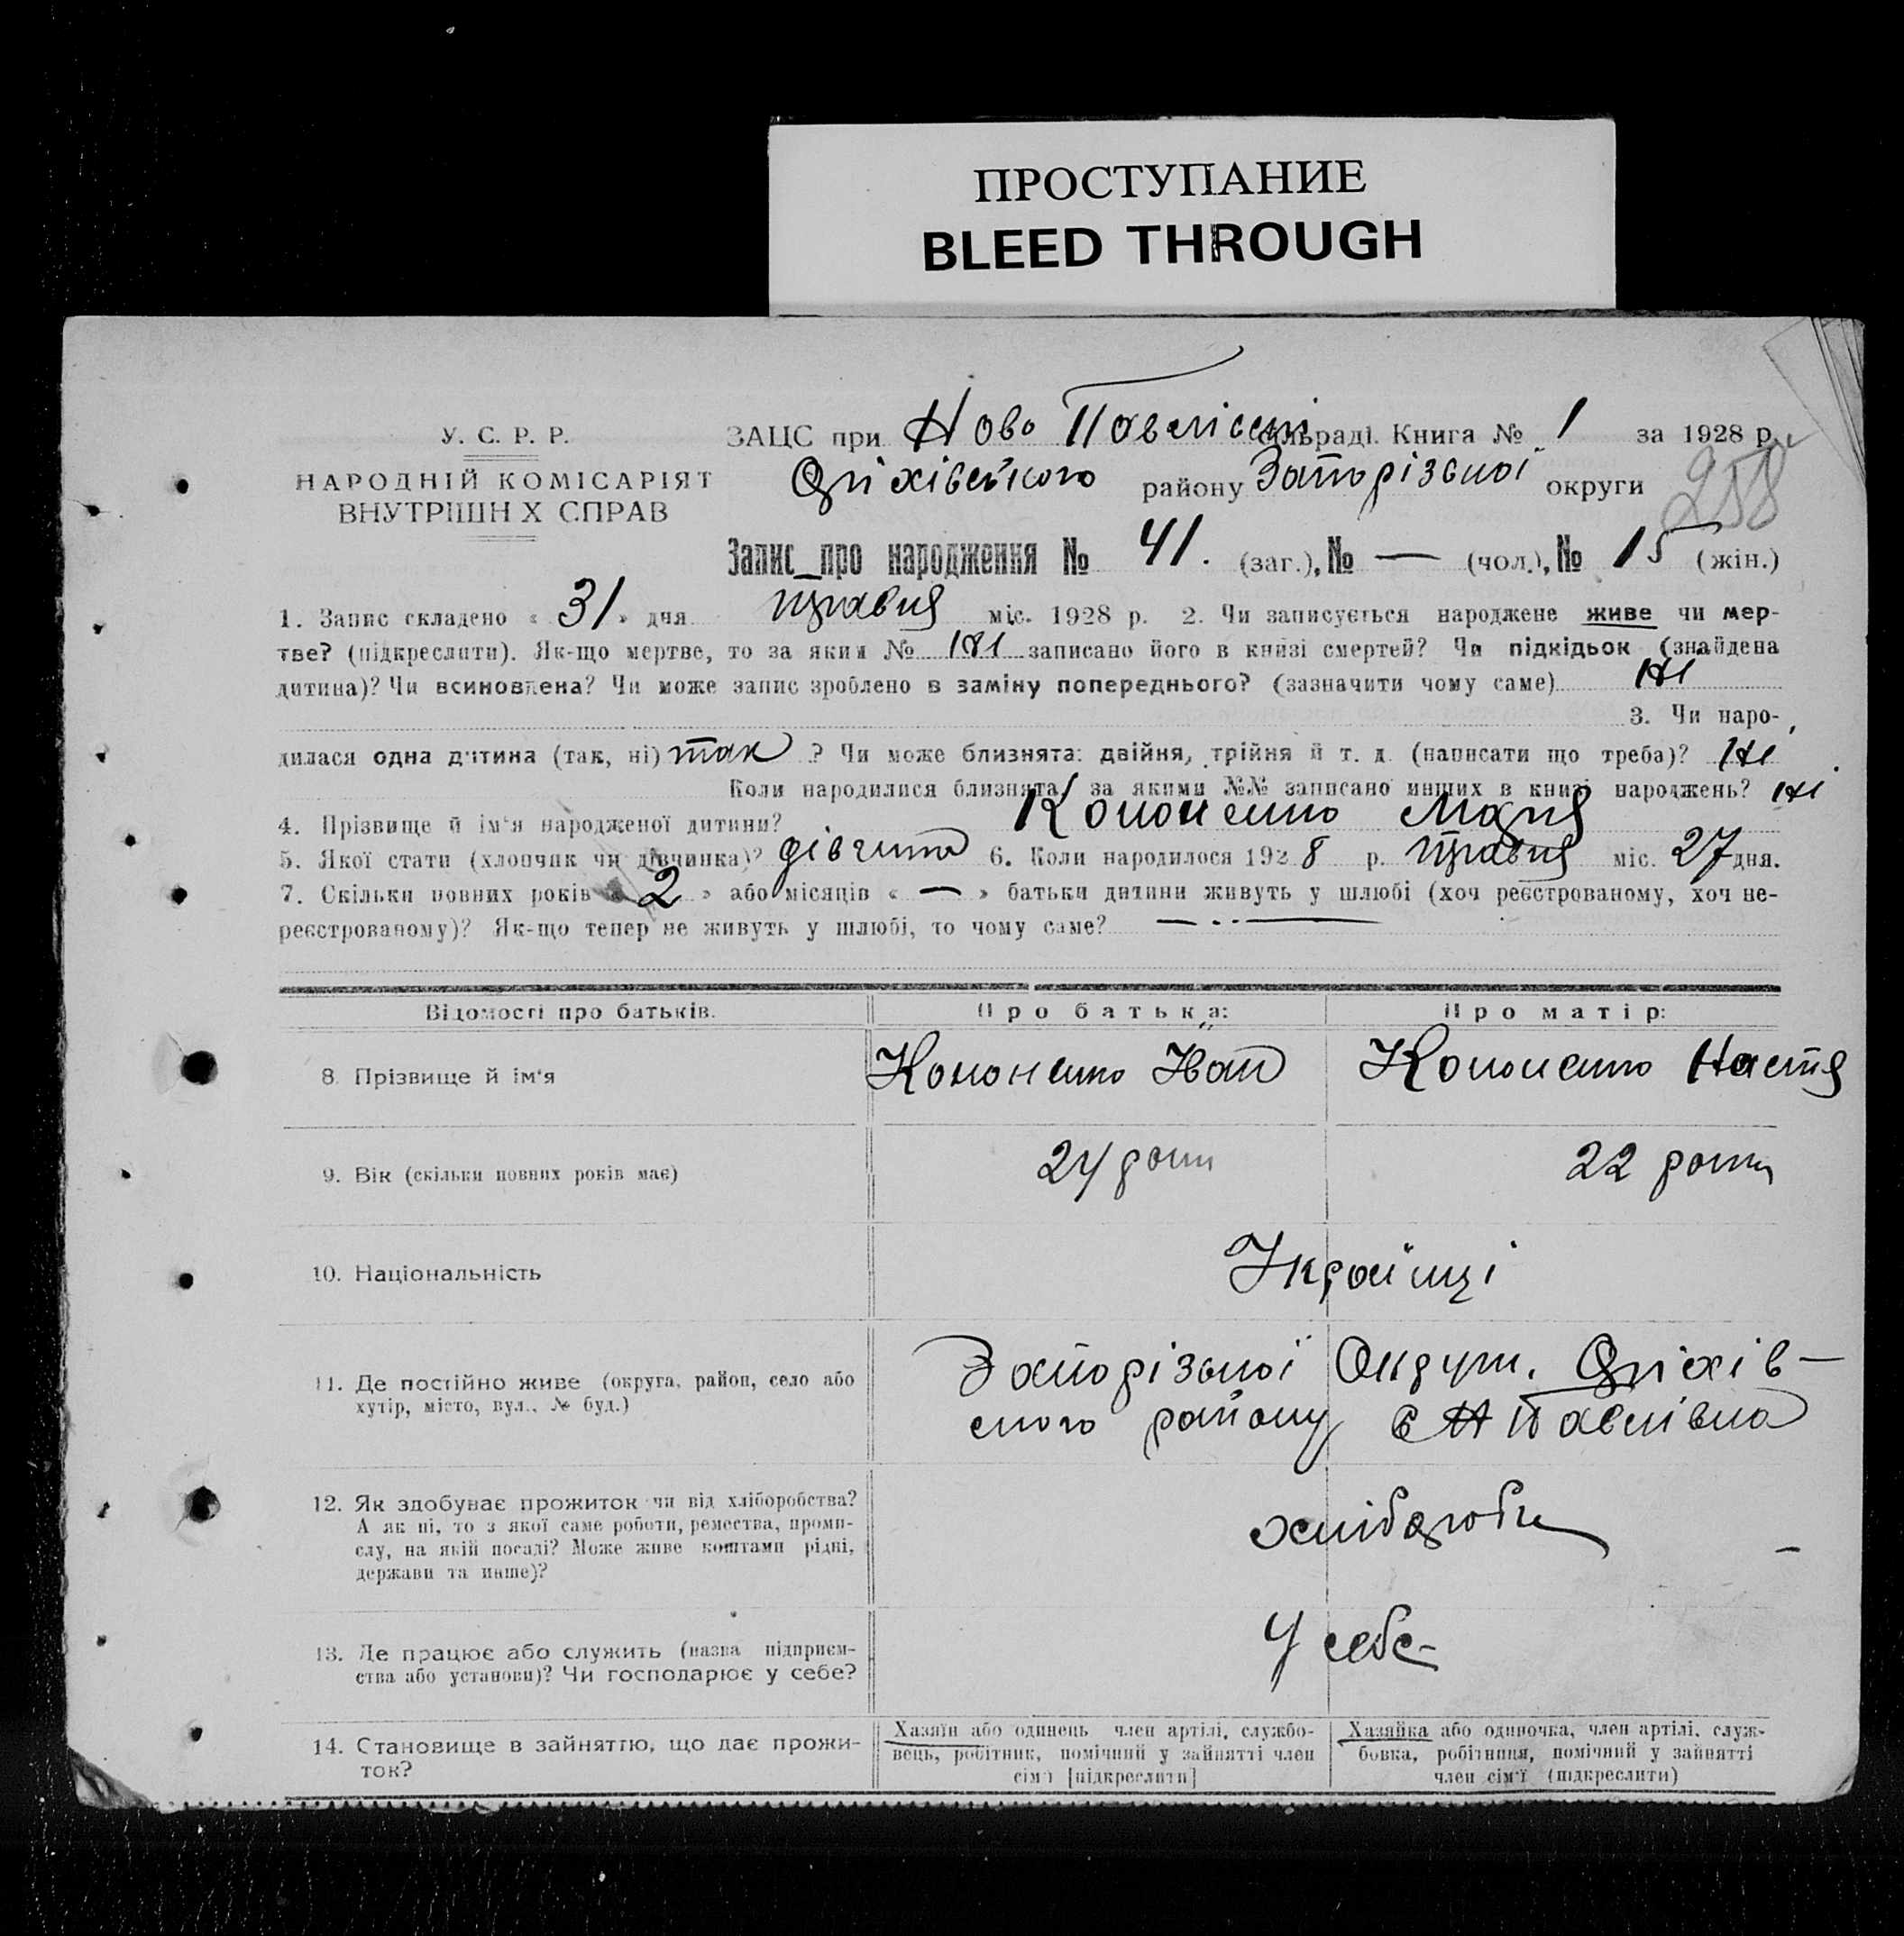 ПРОСТУПАНИЕ
BLEED THROUGH
У. С. Р. Р.
НАРОДНІЙ КОМІСАРІЯТ
ВНУТРІШН Х СПРАВ
ЗАЦС при Ново Павлівській сільраді. Книга № 1 за 1928 р.
Оріхівського району Запорізької округи
258
Запис про народження № 41. (заг.), № — (чол.), № 15 (жін.)
1. Запис складено « 31 » дня травня міс. 1928 р. 2. Чи записується народжене живе чи мер-
тве? (підкреслити). Як-що мертве, то за яким № 181 записано його в книзі смертей? Чи підкідьок (знайдена
дитина)? Чи всиновлена? Чи може запис зроблено в заміну попереднього? (зазначити чому саме) Ні
3. Чи наро-
дилася одна дитина (так, ні) так ? Чи може близнята: двійня, трійня й т. д. (написати що треба)? Ні
Коли народилися близнята, за якими №№ записано инших в книзі народжень? Ні
4. Прізвище й ім'я народженої дитини? Кононенко Марія
5. Якої стати (хлопчик чи дівчинка)? дівчина 6. Коли народилося 1928 р. травня міс. 27 дня.
7. Скільки повних років « 2 » або місяців « — » батьки дитини живуть у шлюбі (хоч реєстрованому, хоч не-
реєстрованому)? Як-що тепер не живуть у шлюбі, то чому саме? —
Відомості про батьків. Про батька: Про матір:
8. Прізвище й ім'я Кононенко Іван Кононенко Настя
9. Вік (скільки повних років має) 24 роки 22 роки
10. Національність Українці
11. Де постійно живе (округа, район, село або
хутір, місто, вул., № буд.)
Запорізької Округи. Оріхів-
ського району с Н Павлівка
12. Як здобуває прожиток чи від хліборобства?
А як ні, то з якої саме роботи, ремества, промп-
слу, на якій посаді? Може живе коштами рідні,
держави та инше)?
хлібороби
13. Де працює або служить (назва підприєм-
ства або установи)? Чи господарює у себе?
У себе
14. Становище в зайняттю, що дає прожи-
ток?
Хазяїн або одинець член артілі, службо-
вець, робітник, помічний у зайнятті член
сім'ї [підкреслити]
Хазяйка або одиночка, член артілі, служ-
бовка, робітниця, помічний у зайнятті
член сім'ї (підкреслити)